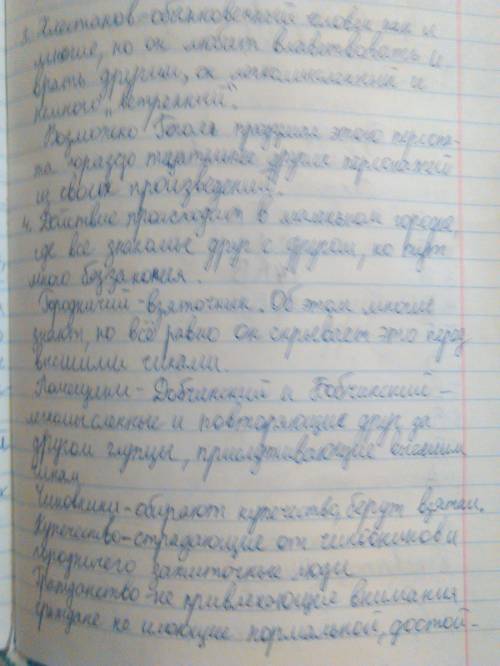 3. Хлестаков-обыкновенный человек как и
многие, но он любит властвовать и
врать другим, он легкомысленный и
немного "ветренный".
Возможно Гоголь продумал этого персона-
жа гораздо тщательнее других персонажей
из своих произведений.
4. Действие происходит в маленьком городке,
где все знакомы друг с другом, но тут
много беззакония.
Городничий-взяточник. Об этом многие
знают, но всё равно он скрывает это перед
высшими чинами.
Помещики-Добчинский и Бобчинский-
легкомысленные и повторяющие друг за
другом глупцы, прислуживающие высшим
чинам
Чиновники-обирают купечество, берут взятки.
Купечество-страдающие от чиновников и
городничего зажиточные люди
Гражданство-не привлекающие внимания
граждане не имеющие нормальной, достой-